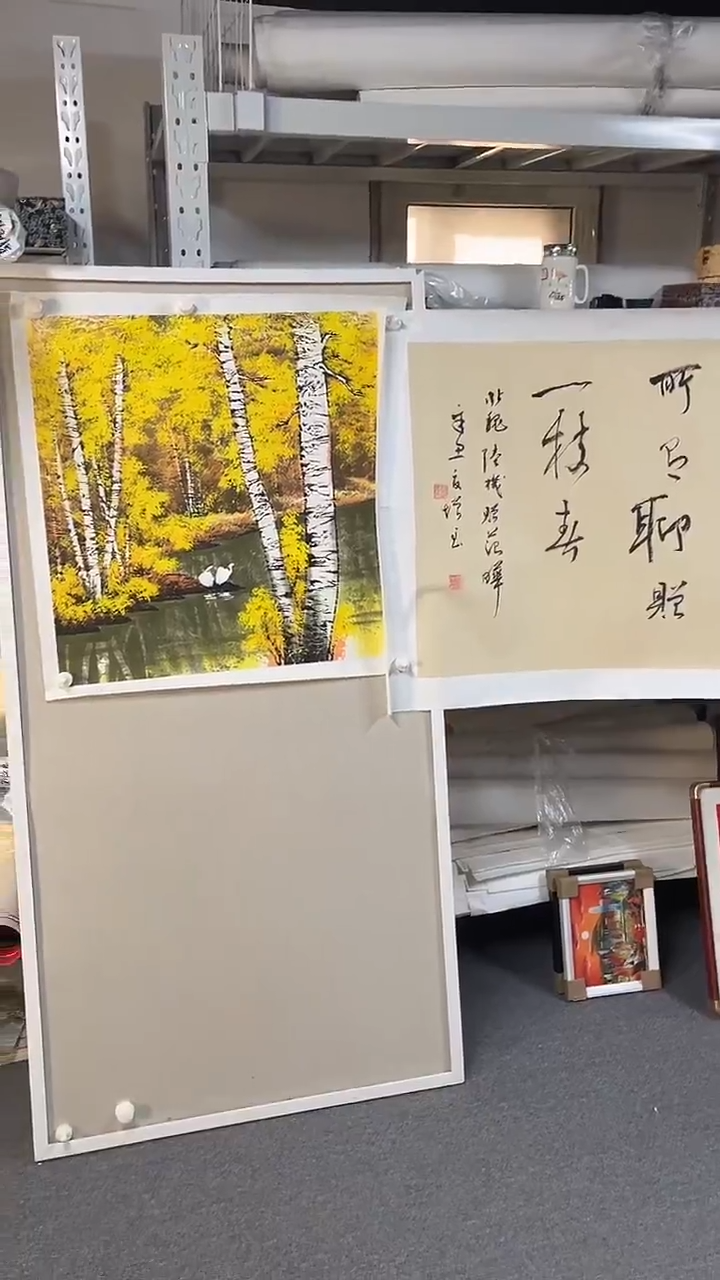 所有聊贈
一枝春
北魏陸贈范曄
辛丑